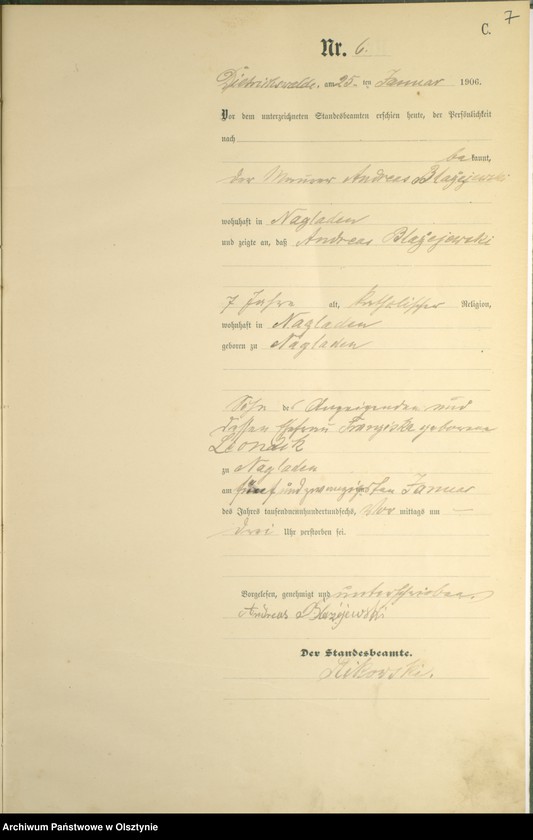 C. 7
Nr. 6.
Dietrichswalde, am 25. ten Januar 1906.
Vor dem unterzeichneten Standesbeamten erschien heute, der Persönlichkeit
nach
bekannt,
der Maurer Andreas Blazejewski
wohnhaft in Nagladen
und zeigte an, daß Andreas Blazejewski
7 Jahre alt, katholischer Religion,
wohnhaft in Nagladen
geboren zu Nagladen
Sohn des Anzeigenden und
dessen Ehefrau Franziska geborene
zu Nagladen
am fünfundzwanzigsten Januar
des Jahres tausendneunhundertsechs, Vor mittags um
drei Uhr verstorben sei.
Vorgelesen, genehmigt und unterschrieben
Andreas Blazejewski
Der Standesbeamte.
Archiwum Państwowe w Olsztynie